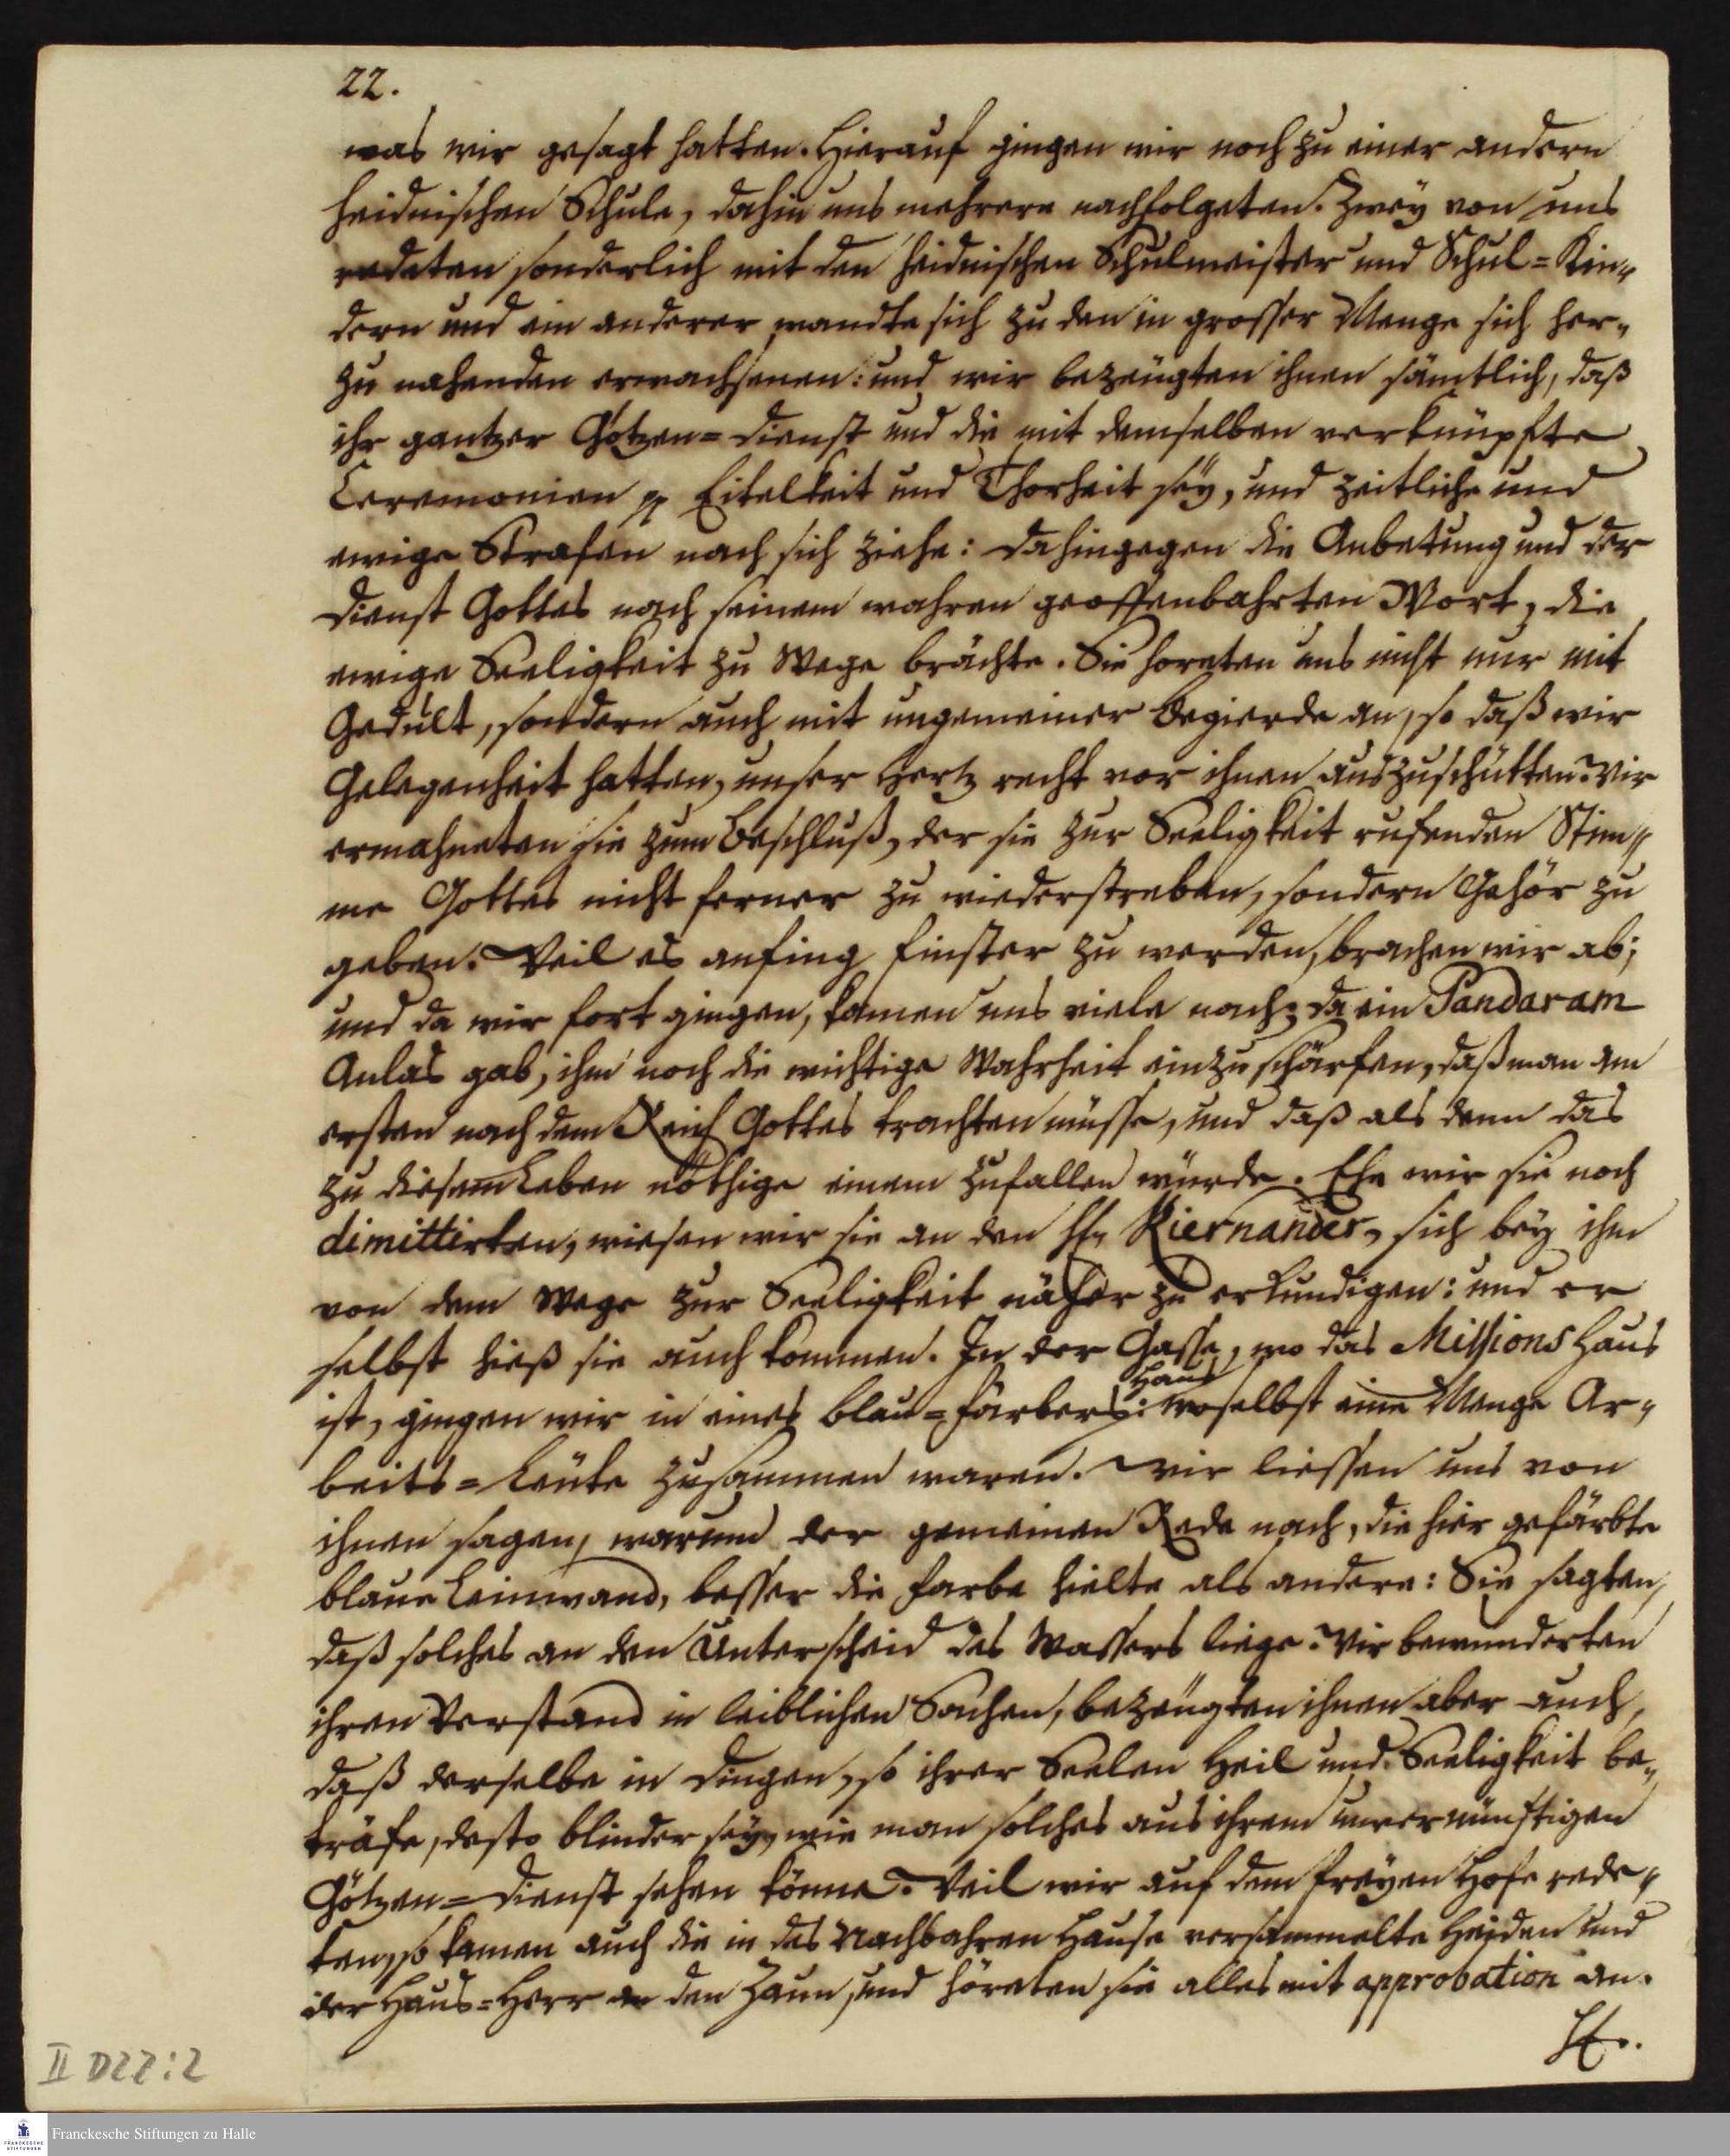 22.
was wir gesagt hatten. Hierauf gingen wir noch zu einer andern
heidnischen Schule, dahin uns mehrere nachfolgeten. Zwey von uns
redeten sonderlich mit den heidnischen Schulmeister und Schul=Kin„
dern und ein anderer wandte sich zu den in grosser Menge sich her„
zu nahenden erwachsenen: und wir bezeugten ihnen sämtlich, daß
ihr gantzer Götzen=dienst und die mit demselben verknüpfte
Ceremonien pp Eitelkeit und Thorheit sey, und zeitliche und
ewige Strafen nach sich ziehe: dahingegen die Anbetung und der
dienst Gottes nach seinem wahren geoffenbahrten Wort, die
ewige Seeligkeit zu Wege brächte. Sie horeten uns nicht nur mit
Gedult, sondern auch mit ungemeiner Begierde an, so daß wir
Gelegenheit hatten, unser Hertz recht vor ihnen auszuschütten. Wir
ermahneten sie zum Beschluß, der sie zur Seeligkeit rufenden Stim„
me Gottes nicht ferner zu wiederstreben, sondern Gehör zu
geben. Weil es anfing finster zu werden, brachen wir ab;
und da wir fort gingen, kamen uns viele nach; da ein Pandaram
Anlas gab, ihm noch die wichtige Wahrheit einzuschärfen, daß man am
ersten nach dem Reich Gottes trachten müsse, und daß als denn das
zu diesem Leben nöthige einem zufallen würde. Ehe wir sie noch
dimittirten, wiesen wir sie an den Hn Kiernander, sich bey ihm
von dem Wege zur Seeligkeit näher zu erkundigen: und er
selbst hieß sie auch kommen. In der Gasse, wo das Missions Haus
ist, gingen wir in eines blau=färbers Haus: woselbst eine Menge Ar„
beits=Leute zusammen waren. Wir liessen uns von
ihnen sagen, warum der gemeinen Rede nach, die hier gefärbte
blaue Leinwand, besser die Farbe hielte als andere: Sie sagten,
daß solches an den Unterscheid des Wassers liege. Wir bewunderten
ihren Verstand in leiblichen Sachen, bezeugten ihnen aber auch,
daß derselbe in dingen, so ihrer Seelen Heil und Seeligkeit be„
träfe, desto blinder sey, wie man solches aus ihrem unvernünftigen
Götzen=dienst sehen könne. Weil wir auf dem freyen Hofe rede„
ten, so kamen auch die in des Nachbahren Hause versammelte Heiden und
der Haus=Herr an den Zaun, und höreten sie alles mit approbation an.
II D22:2
Franckesche Stiftungen zu Halle
FRANCKESCHE
STIFTUNGEN